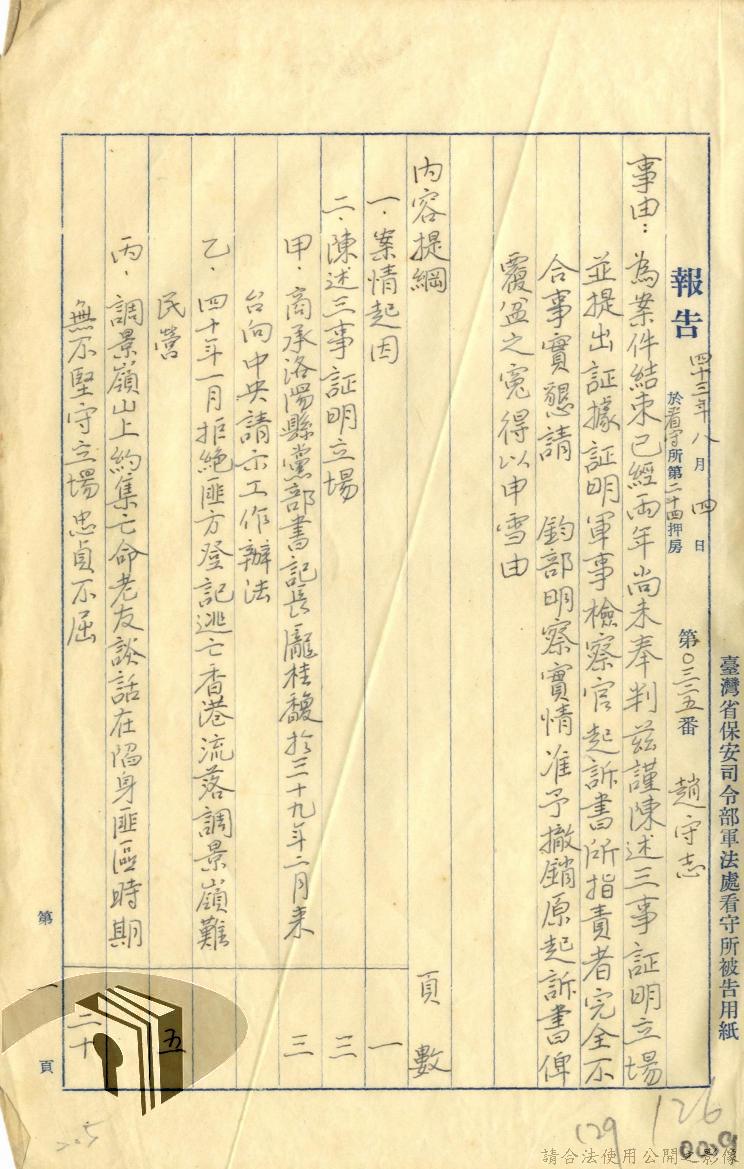 臺灣省保安司令部軍法處看守所被告用紙
報告
四十三年八月四日
於看守所第二十四押房
第〇三三五番 趙守志
事由：為案件結束已經兩年尚未奉判茲謹陳述三事証明立場
並提出証據証明軍事檢察官起訴書所指責者完全不
合事實懇請 鈞部明察實情准予撤銷原起訴書俾
覆盆之冤得以申雪由
內容提綱 頁數
一．案情起因 一
二．陳述三事証明立場 三
甲．商承洛陽縣黨部書記長龐桂馥於三十九年二月来 三
台向中央請示工作辦法
乙．四十年一月拒絕匪方登記逃亡香港流落調景嶺難
民營 五
丙．調景嶺山上約集亡命老友談話在陷身匪區時期
無不堅守立場忠貞不屈 二十
第一頁
205
129
126
0009
請合法使用公開之影像